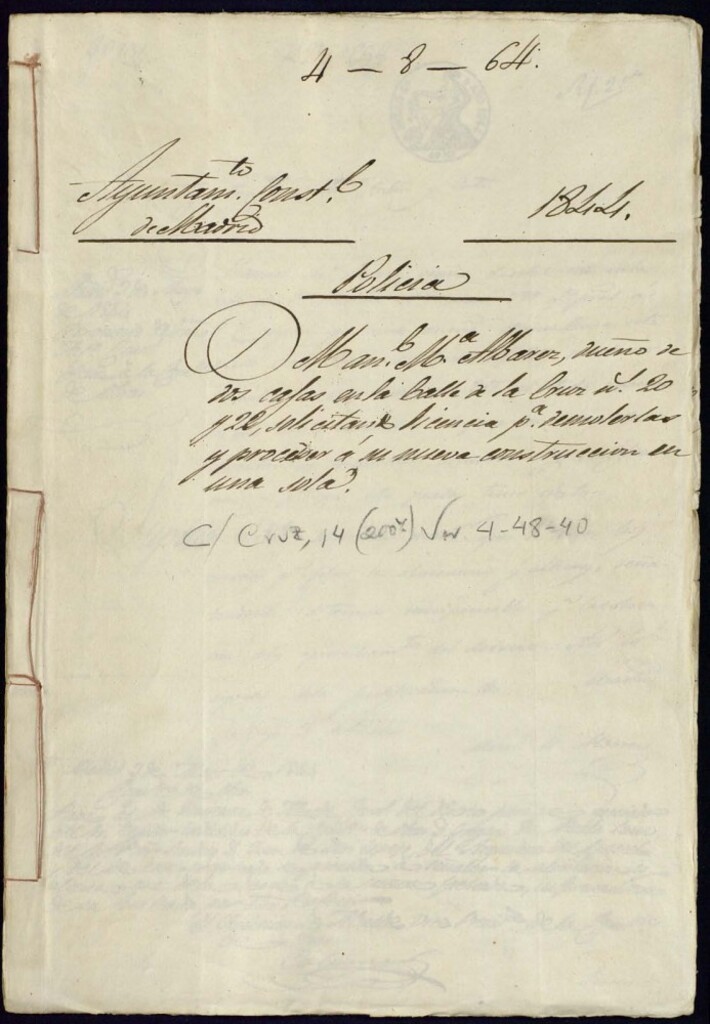 4 — 8 — 64.
Ayuntam.to Const.l
de Madrid
1844.
Policia
D Man.l M.a Alvarez, dueño de
dos casas en la Calle de la Cruz n.º 20
y 22, solicitando licencia p.a demolerlas
y proceder á su nueva construccion en
una sola.
C/ Cruz, 14 (2007) Ver 4-48-40